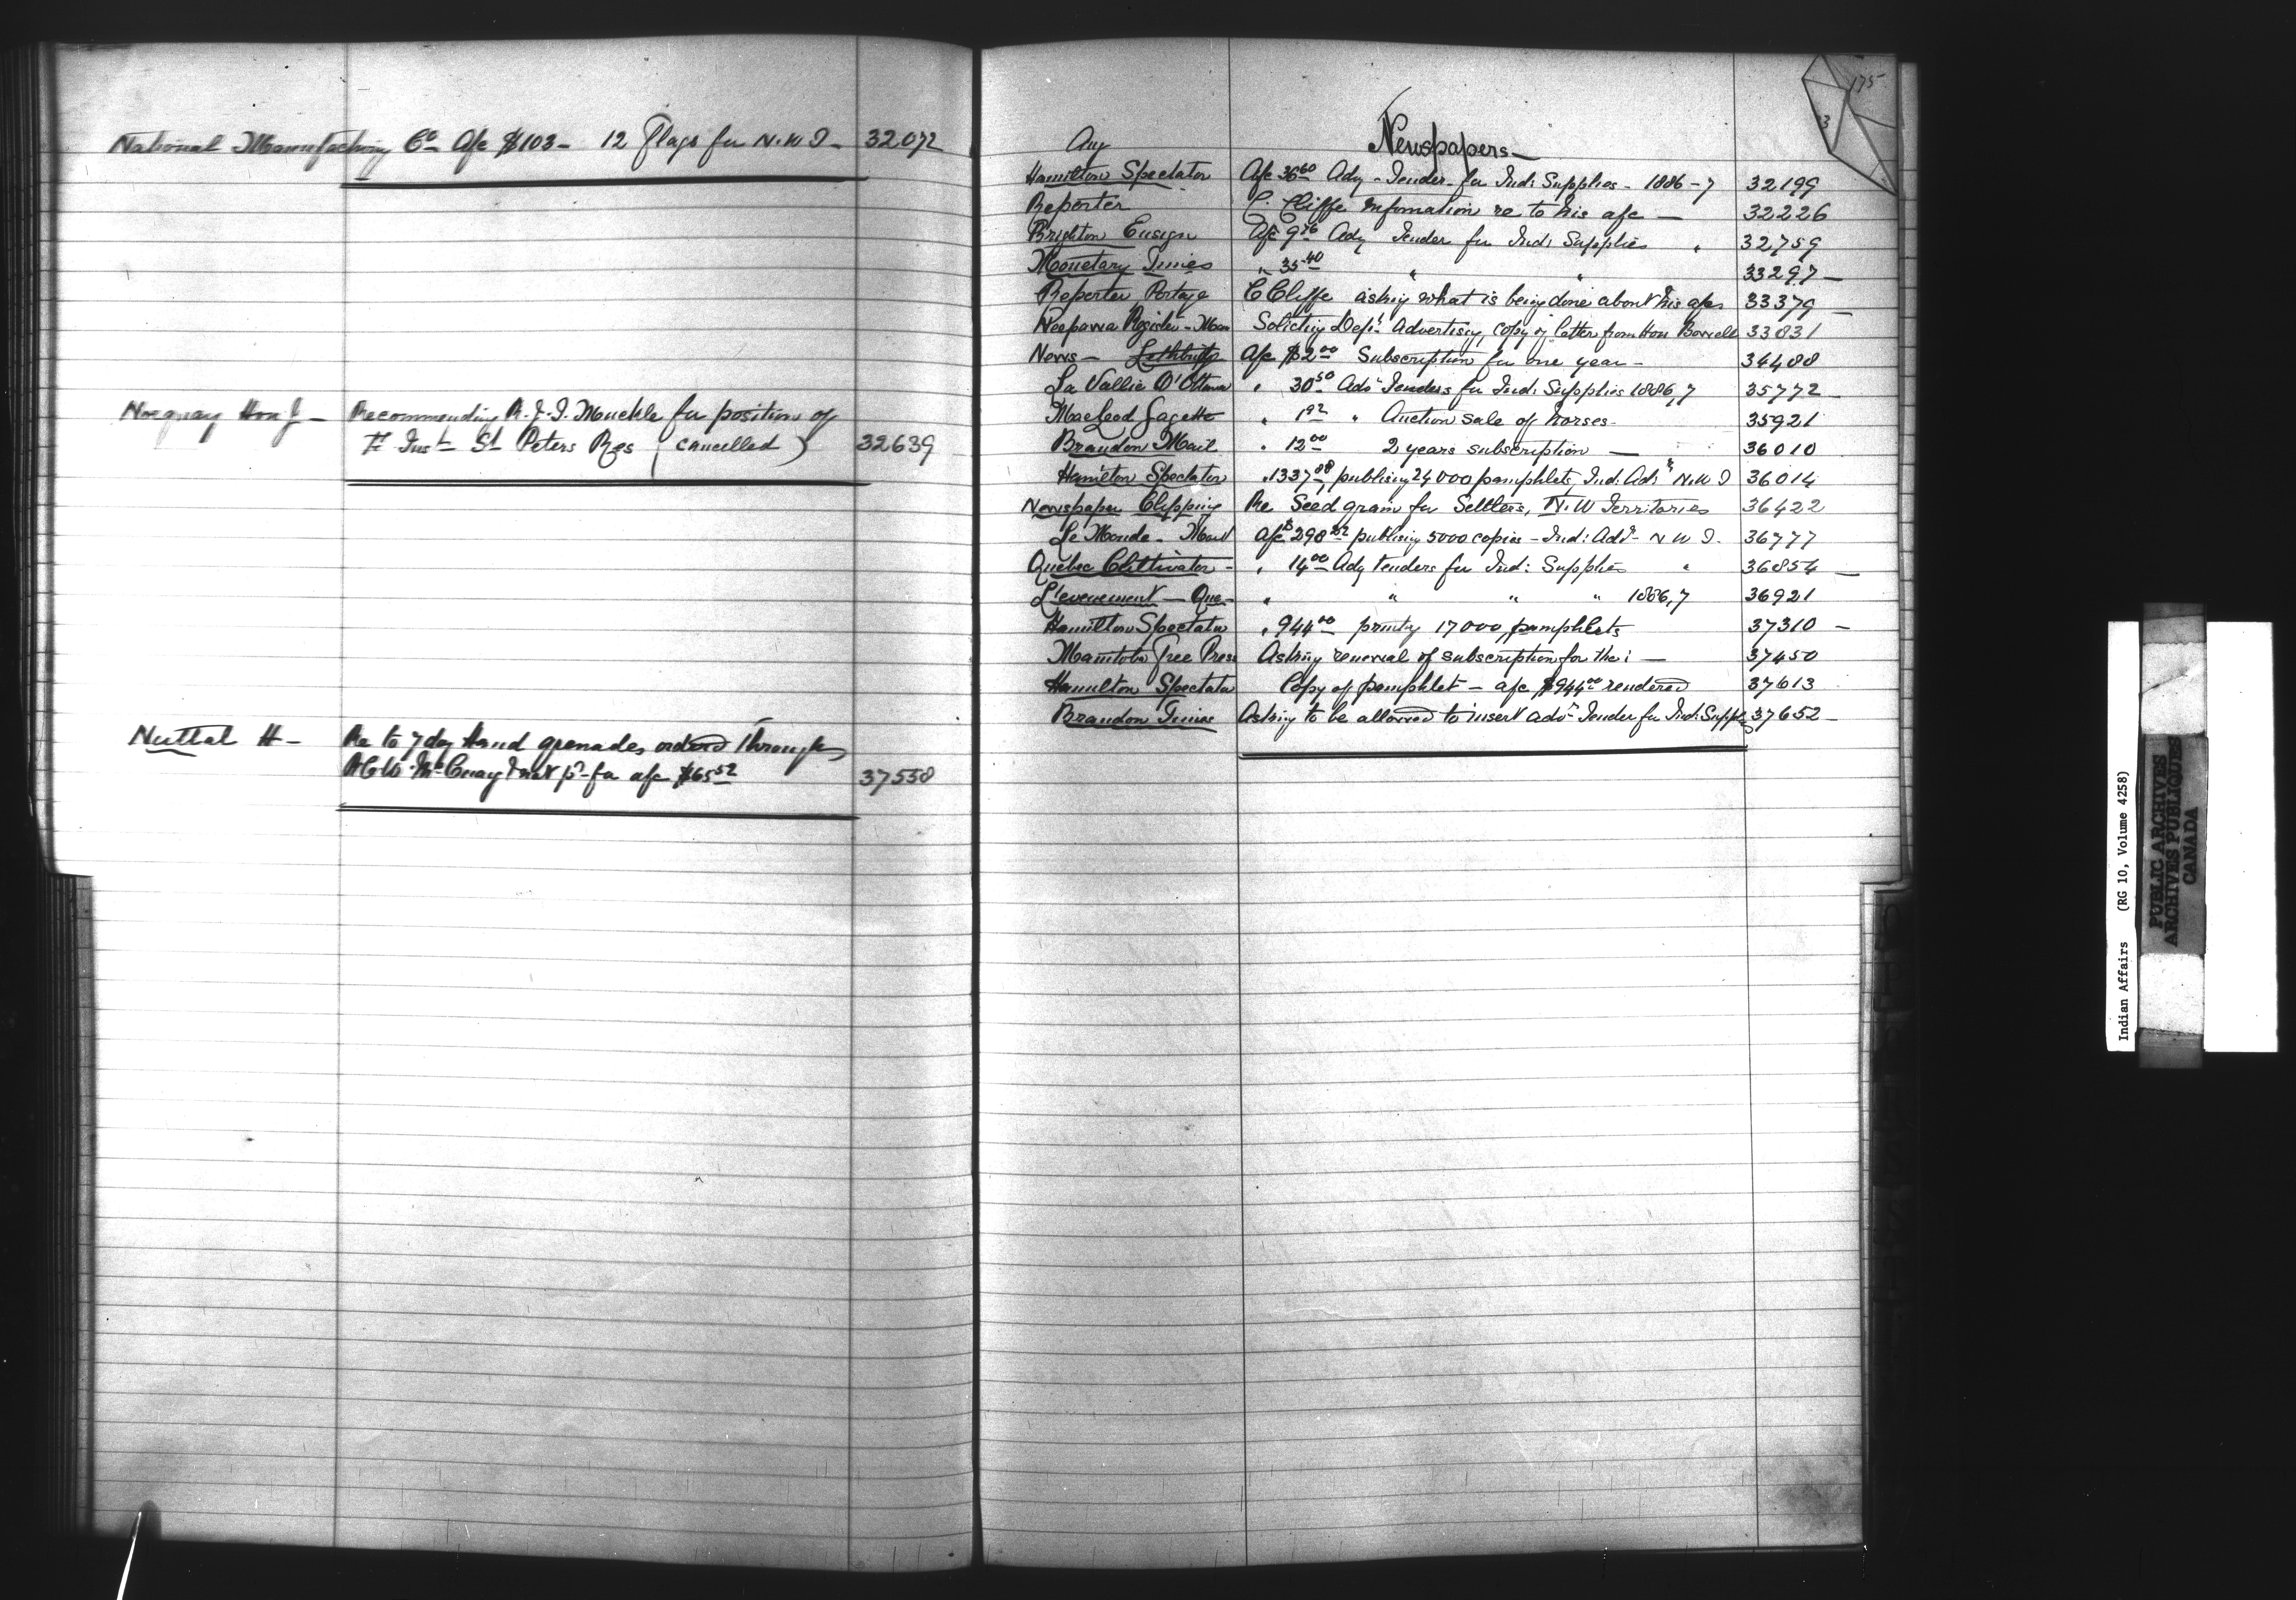 National Manufacturing Co A/c $103- 12 Flags for N.W.T- 32072
Norquay Hon J- Recommending R.J.T. Muckle for position of
St Peters Res (cancelled) 32639
Nuttal H- Re to 7 doz Hand grenades ordered through
McCuaig & not pd for a/c $65.52 37558
175
3
Aug Newspapers-
Hamilton Spectator A/c 36.60 Advg Tender for Ind: Supplies- 1886-7 32199
Reporter C. Cliffe Information re to his a/c - 32226
Brighton Ensign A/c 9.76 Advg Tender for Ind: Supplies " 32759
Monetary Times " 35.40 " " 33297-
Reporter Portage C Cliffe asking what is being done about his a/cs 33379-
Neepawa Register-Man Soliciting Dept Advertising, copy of letter from Hon Bowell 33831
News- Lethbridge A/c $2.00 Subscription for one year- 34488
La Vallie D'Ottawa " 30.50 Adv Tenders for Ind: Supplies 1886,7 35772-
MacLeod Gazette " 1.92 " Auction sale of horses- 35921
Brandon Mail " 12.00 2 years subscription - 36010
Hamilton Spectator " 1337.88 publising 24000 pamphlets, Ind: Adn N.W T 36014
Newspaper Clipping Re Seed grain for Settlers, N.W Territories 36422
Le Monde- Monl A/c $298. publising 5000 copies- Ind: Adn- N W T. 36777
Quebec Cultivator- " 14.00 Advg tenders for Ind: Supplies " 36854-
L'evenement- Que- " " " " 1886,7 36921
Hamilton Spectator " 944.00 printg 17000 pamphlets 37310-
Manitoba Free Press Asking renewal of subscription for the: - 37450
Hamilton Spectator Copy of pamphlet- a/c $944.00 rendered 37613
Brandon Times Asking to be allowed to insert advt Tender for Ind: Supps 37652-
Indian Affairs (RG 10, Volume 4258)
PUBLIC ARCHIVES
ARCHIVES PUBLIQUES
CANADA